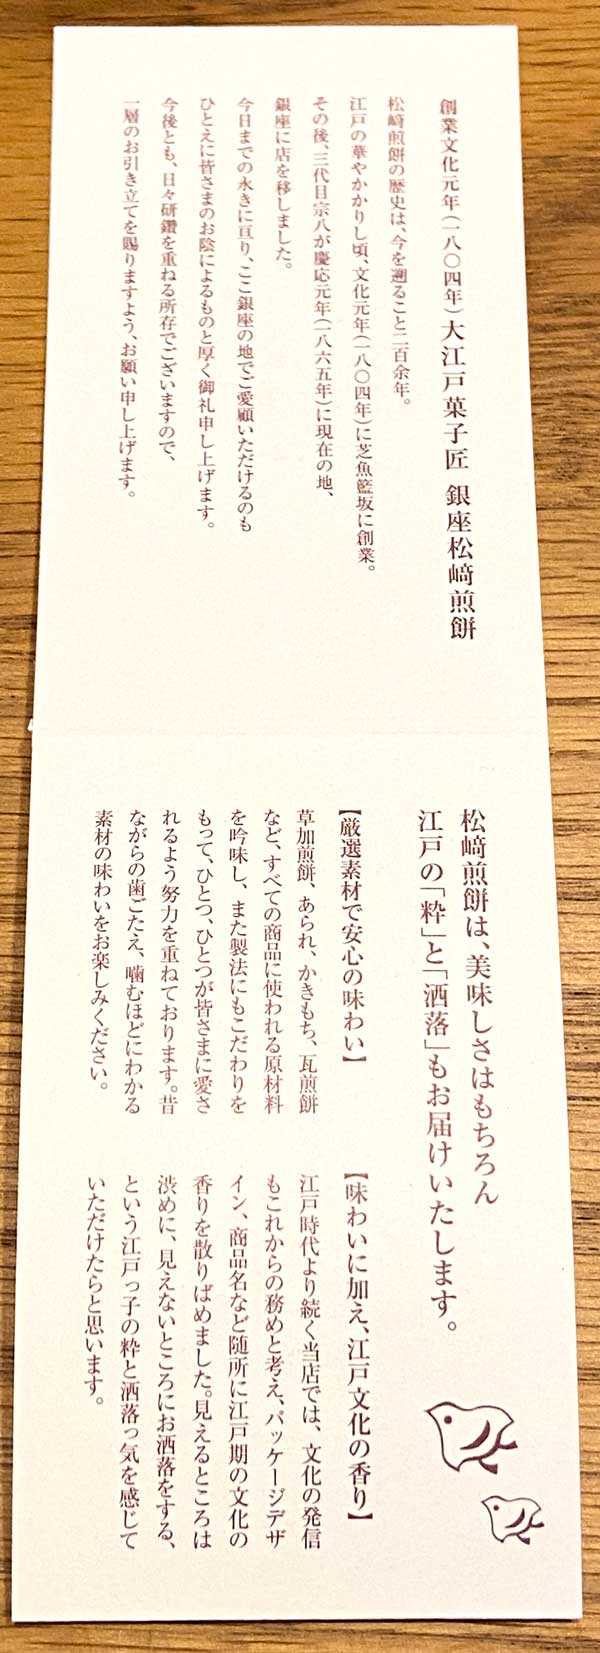 創業文化元年(一八〇四年)大江戸菓子匠 銀座松﨑煎餅
松﨑煎餅の歴史は、今を遡ること二百余年。
江戸の華やかかりし頃、文化元年(一八〇四年)に芝魚籃坂に創業。
その後、三代目宗八が慶応元年(一八六五年)に現在の地、
銀座に店を移しました。
今日までの永きに亘り、ここ銀座の地でご愛顧いただけるのも
ひとえに皆さまのお陰によるものと厚く御礼申し上げます。
今後とも、日々研鑽を重ねる所存でございますので、
一層のお引き立てを賜りますよう、お願い申し上げます。
松﨑煎餅は、美味しさはもちろん
江戸の「粋」と「洒落」もお届けいたします。
【厳選素材で安心の味わい】
草加煎餅、あられ、かきもち、瓦煎餅
など、すべての商品に使われる原材料
を吟味し、また製法にもこだわりを
もって、ひとつ、ひとつが皆さまに愛さ
れるよう努力を重ねております。昔
ながらの歯ごたえ、噛むほどにわかる
素材の味わいをお楽しみください。
【味わいに加え、江戸文化の香り】
江戸時代より続く当店では、文化の発信
もこれからの務めと考え、パッケージデザ
イン、商品名など随所に江戸期の文化の
香りを散りばめました。見えるところは
渋めに、見えないところにお洒落をする、
という江戸っ子の粋と洒落っ気を感じて
いただけたらと思います。